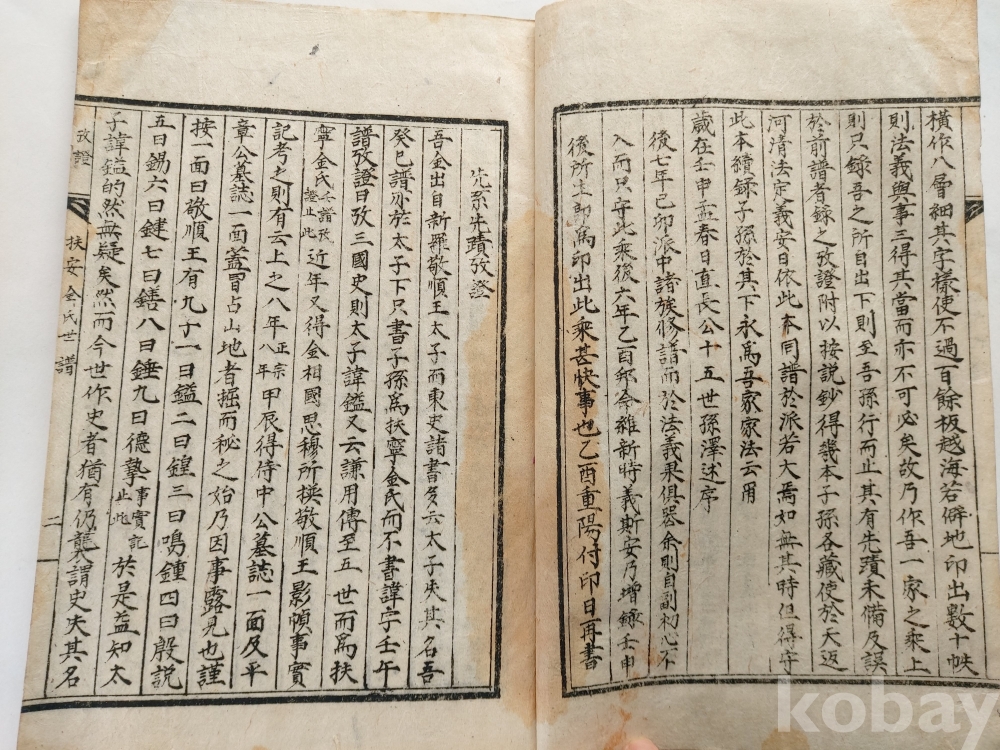 橫作八層細其字樣使不過百餘板越海若僻地印出數十帙
則法義與事三得其當而亦不可必矣故乃作吾一家之乘上
則只錄吾之所自出下則至吾孫行而止其有先蹟未備及誤
於前譜者錄之攷證附以按說鈔得幾本子孫各藏使於天返
河清法定義安日依此本同譜於派若大焉如無其時但得守
此本續錄子孫於其下永爲吾家家法云爾
歲在壬申孟春日直長公十五世孫澤述序
後七年己卯派中諸族修譜而於法義果俱器余則自副初心不
入而只守此乘後六年乙酉邦命維新時義斯安乃增錄壬申
後所生卽爲印出此乘甚快事也乙酉重陽付印日再書
先系先蹟攷證
吾金出自新羅敬順王太子而東史諸書多云太子失其名吾
癸巳譜亦於太子下只書子孫爲扶寧金氏而不書諱字壬午
譜攷證曰攷三國史則太子諱鎰又云謙用傳至五世而爲扶
寧金氏譜攷證止此近年又得金相國思穆所撰敬順王影幀事實
記考之則有云上之八年正宗八年甲辰得侍中公墓誌一面及平
章公墓誌一面蓋冒占山地者掘而秘之始乃因事露見也謹
按一面曰敬順王有九子一曰鎰二曰鍠三曰鳴鍾四曰殷說
五曰錫六曰鍵七曰鐥八曰錘九曰德摯事實記止此於是益知太
子諱鎰的然無疑矣然而今世作史者猶有仍襲謂史失其名
攷證
扶安金氏世譜
二
kobay